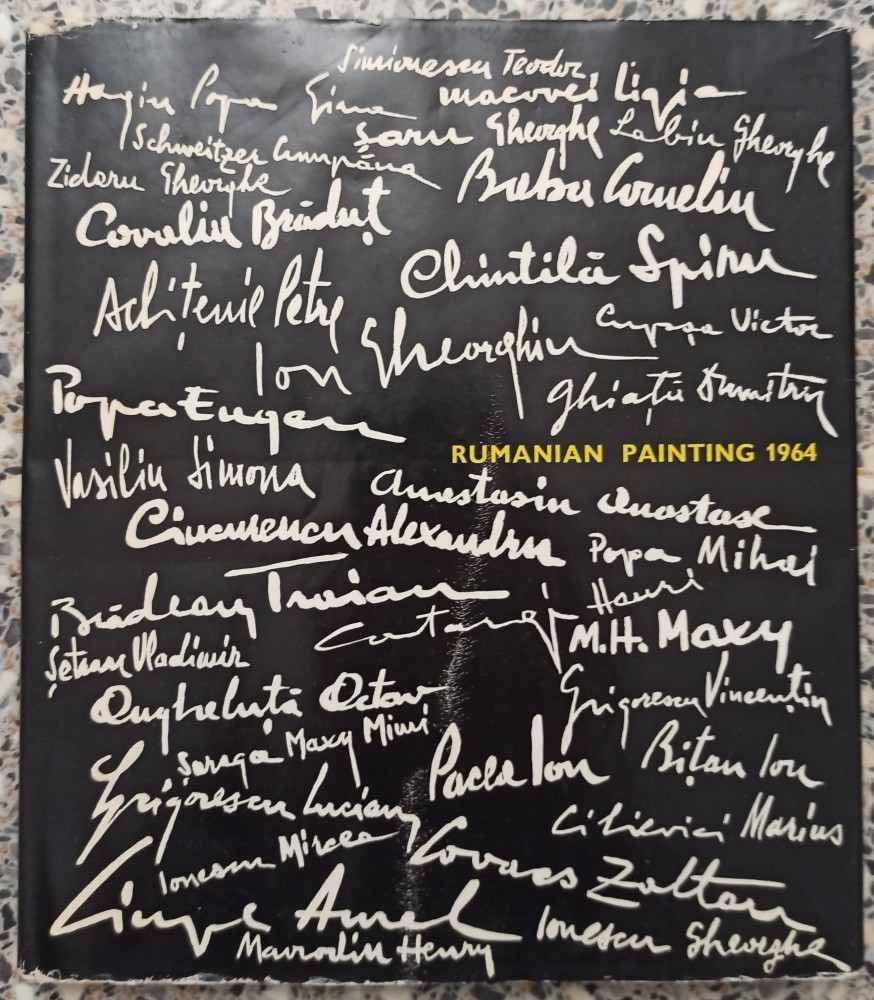 Simionescu Teodor
Hagiu Popa Gina
Macovei Ligia
Schweitzer Cumpăna
Șaru Gheorghe
Labin Gheorghe
Zidaru Gheorghe
Baba Corneliu
Covaliu Brăduț
Chintilă Spiru
Achițenie Petre
Ion Gheorghiu
Cupșa Victor
Popa Eugen
Ghiață Dumitru
RUMANIAN PAINTING 1964
Vasiliu Simona
Anastasiu Anastase
Ciucurencu Alexandru
Popa Mihai
Brădean Traian
Catargi Henri
M.H. Maxy
Șetran Vladimir
Angheluță Octav
Grigorescu Vincențiu
Șaraga Maxy Mimi
Pacea Ion
Bițan Ion
Grigorescu Lucian
Cilievici Marius
Ionescu Mircea
Kovacs Zoltan
Ciupe Aurel
Ionescu Gheorghe
Mavrodin Henry